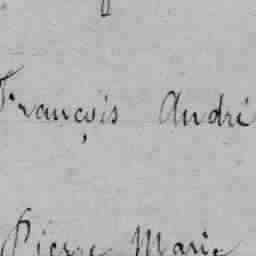 François André
Pierre Marie